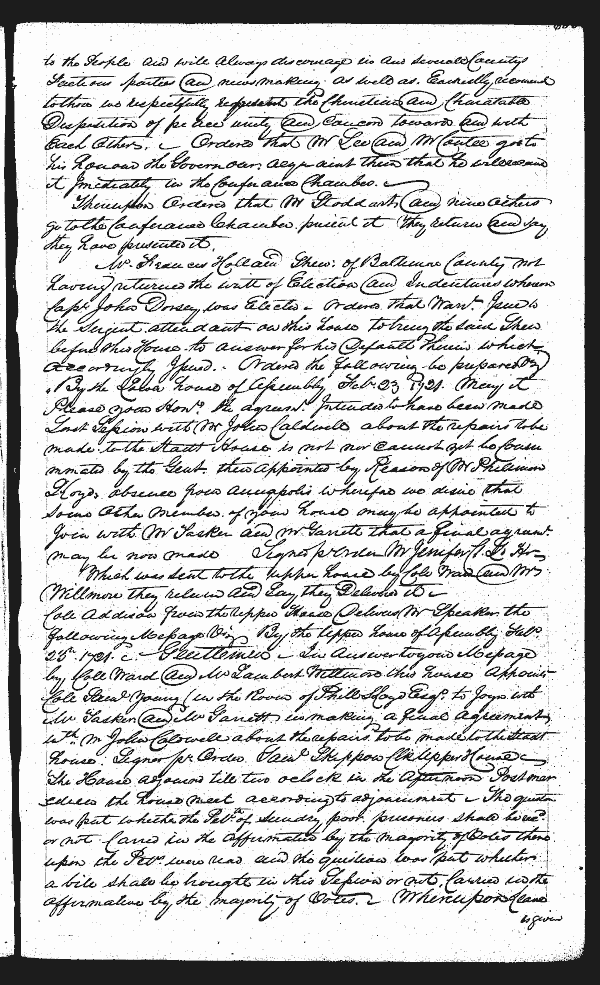 to the People and will always discourage in our severall Countys
factious parties and news making. as well as Earnestly recomend
to those we respectfully represent the Christian and Charitable
Disposition of peace unity and Concord towards and with
Each Other. Ordered that Mr Lee and Mr go to
his honour the Governour acquaint them that he will receive
it Imediately in the Conference Chamber.
Thereupon Ordered that Mr Stoddart and nine others
go to the Conference Chamber present it they return and say
they have presented it.
Mr Francis Holland Sher: of Baltimore County not
having returned the writt of Election and Indentures whereon
Capt John Dorsey was Elected Ordered that Warrt Issue to
the Serjent attendant on this house to bring the said Sher
before this House to answer for his Default therein which
accordingly Issued. Ordered the following be prepared Viz
By the Lower house of Assembly Feb: 23 1721. May it
Please your Honrs the agreemt Intended to have been made
Last Session with Mr John Caldwell about the repairs to be
made to the Stadt House is not nor cannot yet be Consu
mmated by the Gent. then appointed by Reason of Mr Philemon
Lloyds absence from annapolis wherefore we desire that
some other member of your house may be appointed to
Join with Mr Tasker and Mr Garrett that a final agreemt
may be now made Signed pr Order Mr Jenifer Cl. Lo. Ho.
Which was sent to the upper house by Colo Ward and Mr
Willmore they return and say they Delivered it
Colo Addison from the upper House Delivers Mr Speaker the
following Message Viz By the upper house of Assembly Feb:
23d 1721. Gentlemen In Answer to your Message
by Colo Ward and Mr Lambert Willmore this house Appoints
Colo Saml Young (in the Room of Phill: Lloyd Esqr. to Joyn with
Mr Tasker and Mr Garrett in making a final agreement
with Mr John Caldwell about the repairs to be made to the Stadt
house. Signed pr Order Saml Skippon Clk Upper House
The House adjourned till two oClock in the Afternoon Post mer
edien the house meet according to adjournment The question
was put whether the Petn. of sundry poor prisoners shall be read
or not. Carried in the affirmative by the majority of Votes there
upon the Petn. were read and the question was put whether
a bill shall be brought in this Session or not. Carried in the
affirmative by the majority of Votes. Whereupon Leave
is given